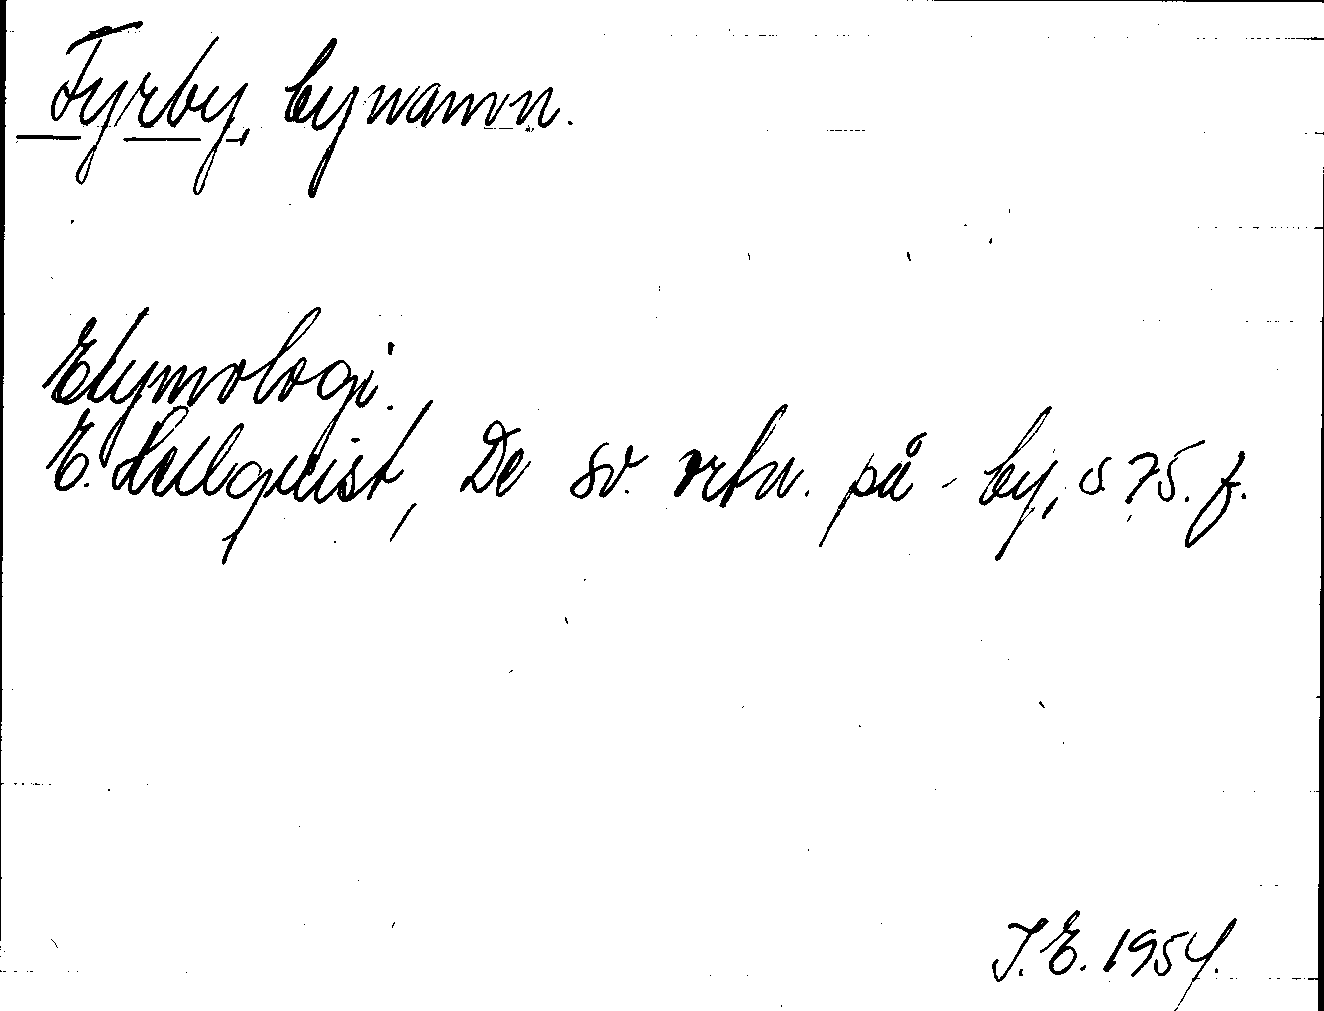 Fyrby, bynamn.
Etymologi.
E. Hellquist, De sv. ortn. på -by, s 75. f.
I. E. 1954.